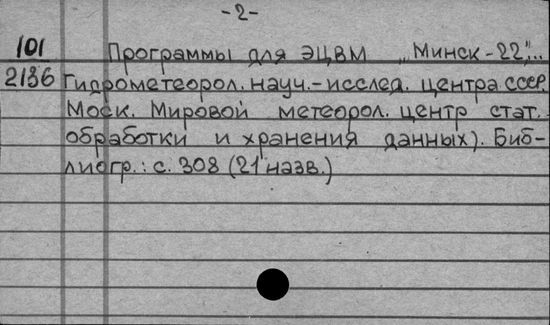 -2-
101 Программы для ЭЦВМ „Минск-22",..
2136 Гидрометеорол. науч.-исслед. центра СССР.
Моск. Мировой метеорол. центр стат.
обработки и хранения данных). Биб-
лиогр.: с. 308 (21 назв.)